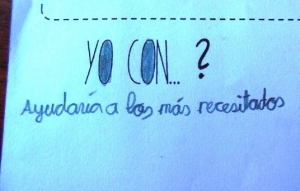 YO CON... ?
Ayudaría a los más necesitados